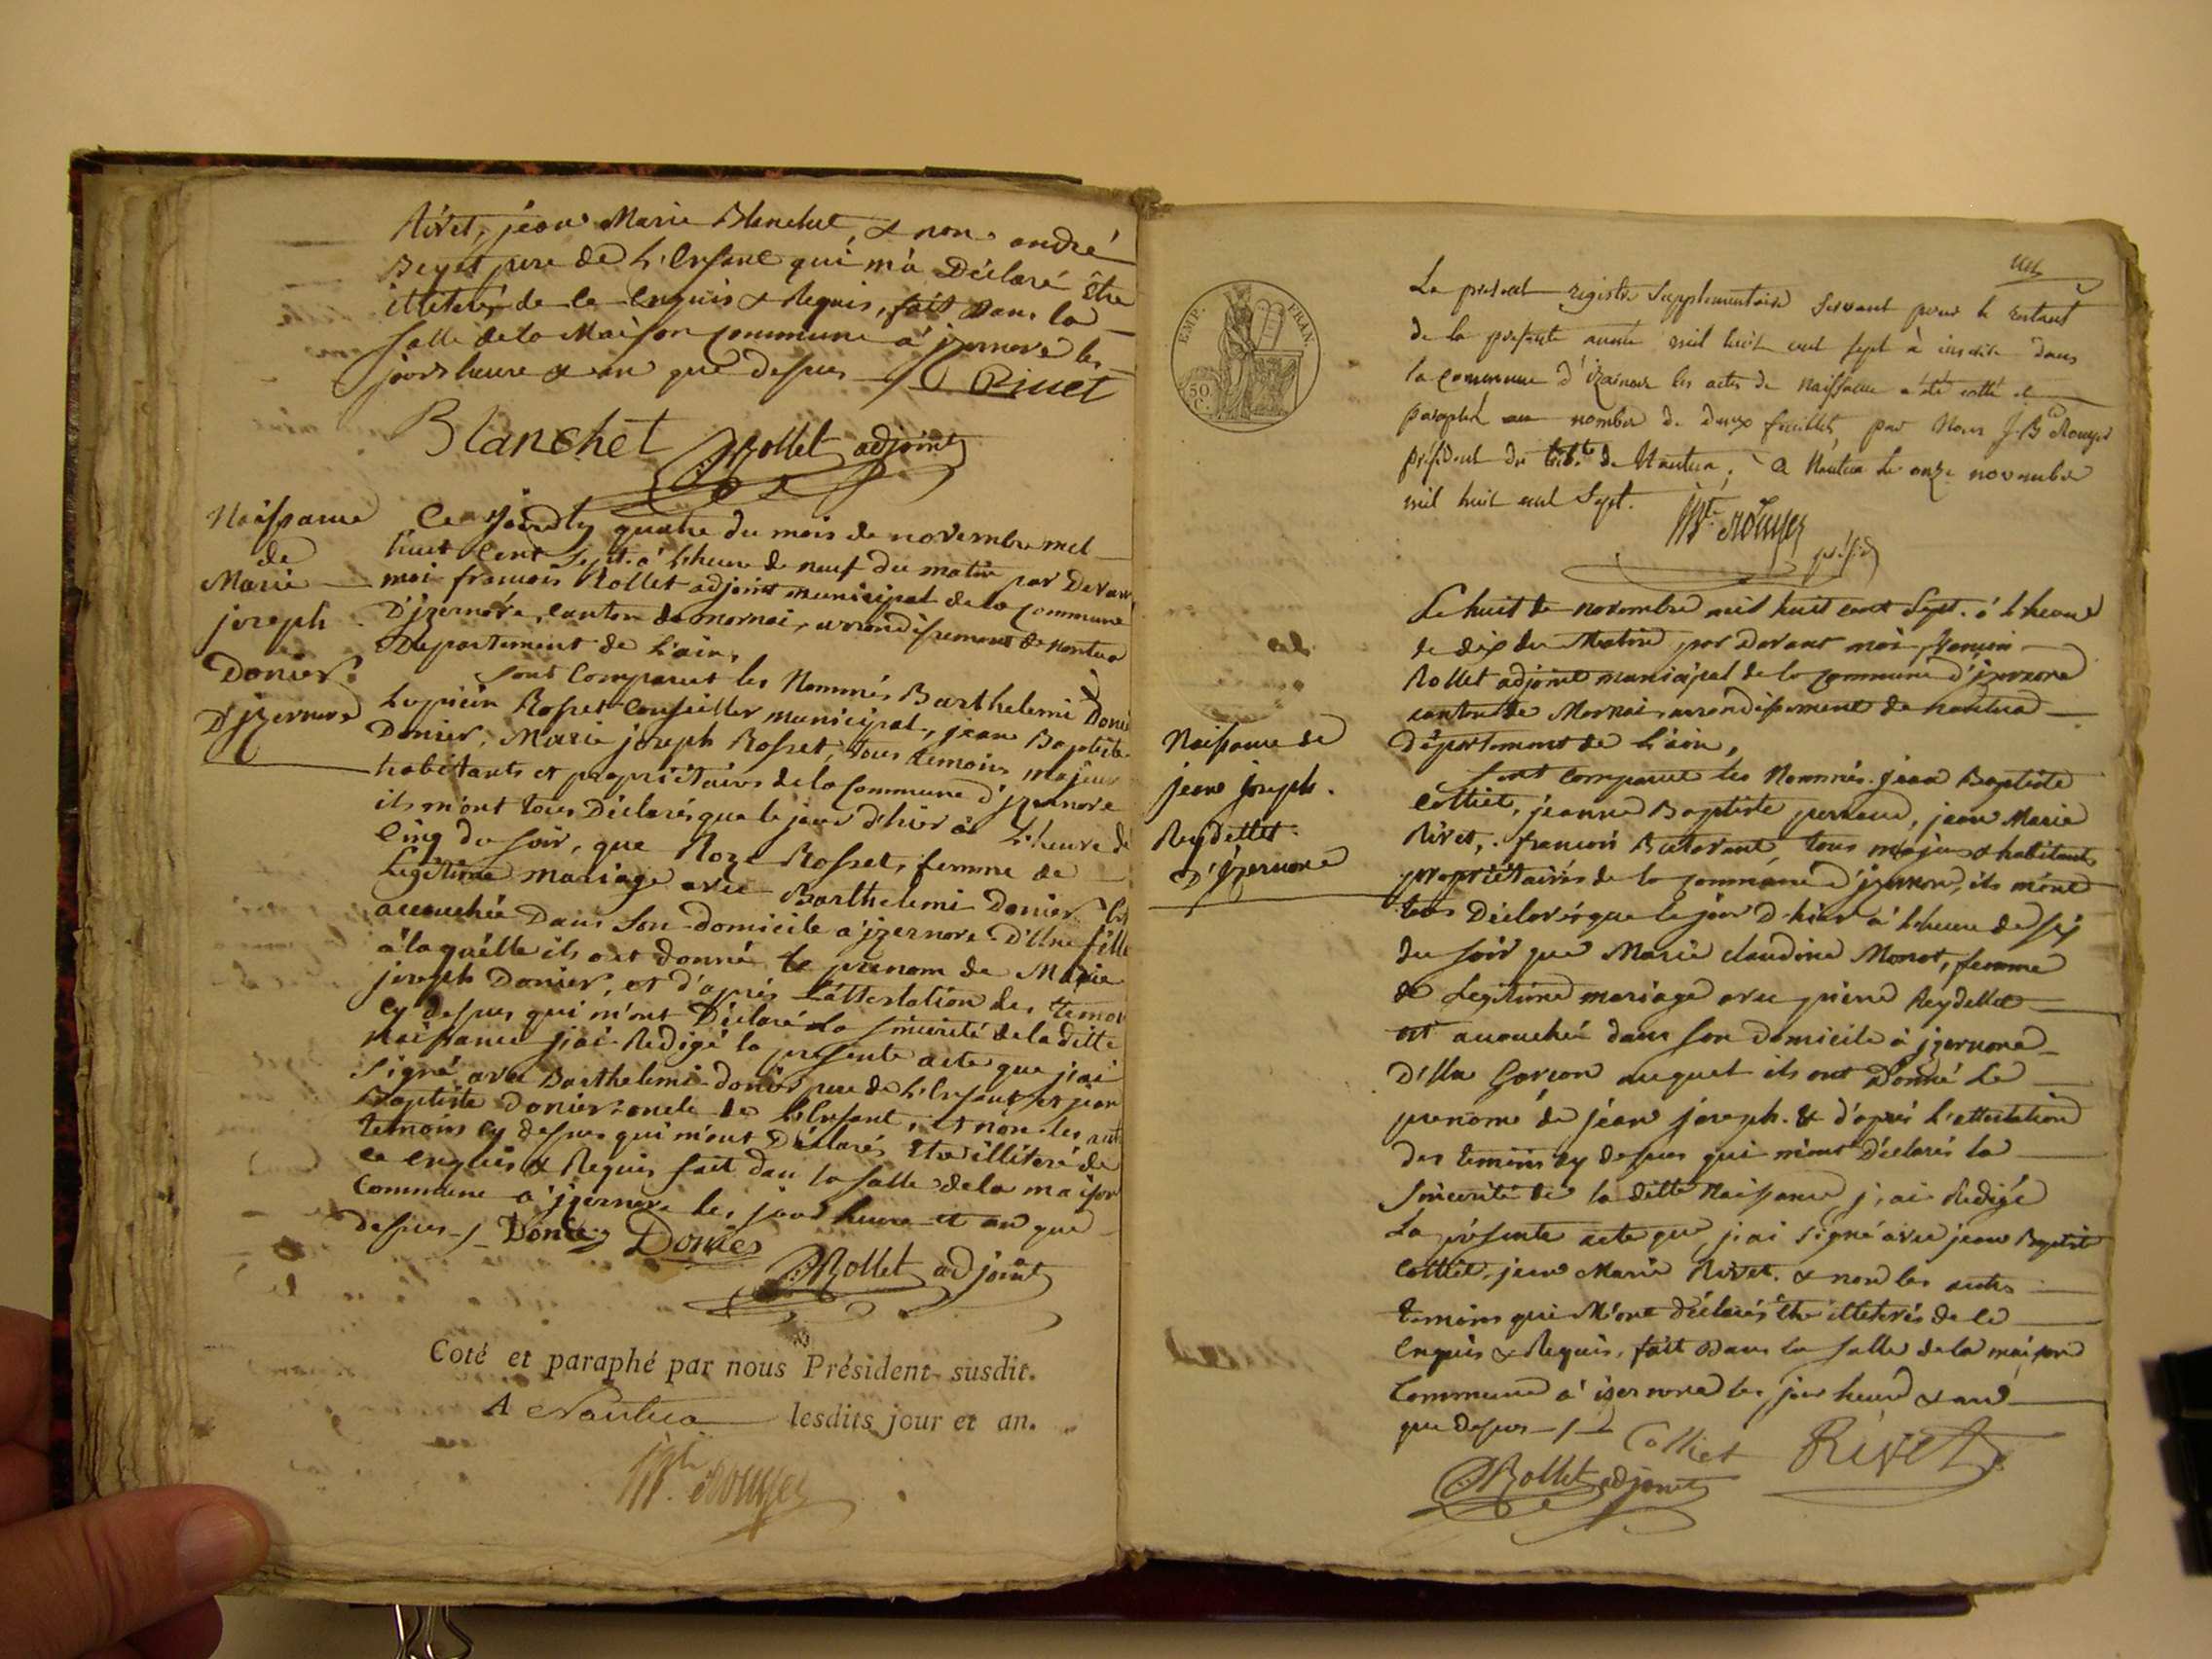 Rivet, jean Marie Blanchet, & non andré
Beget pere de L'Enfant qui m'a Déclaré Être
illeteré de ce Enquis & Requis, fait Dans la
Salle de la Maison commune à jzernore les
jours heure & an que dessus Rivet
Blanchet Rollet adjoint
Naissance
de
Marie
joseph
Donier
D'jzernore
Ce quatre du mois de novembre mil
huit Cent Sept à L'heure de neuf du matin par Devan
moi francois Rollet adjoint municipal de la commune
D'jzernore, canton de mornai, arrondissement de nantua
Departement de L'ain,
Sont Comparut les Nommés Barthelemi Donie
Rosset Conseiller municipal, jean Baptiste
Donier, Marie joseph Rosset, tous temoins majeur
habitants et proprietaires de la Commune d'jzernore
ils m'ont tous Déclarés que le jour d'hier à L'heure de
Cinq du soir, que Roze Rosset, femme de
Legitime mariage avec Barthelemi Donier Est
accouchée Dans Son domicile a jzernore D'Une fille
à laquelle ils ont donné le prenom de Marie
joseph Donier, et d'après L'attestation des temoi
cy dessus qui m'ont Déclaré la sincerité de la ditte
Naissance j'ai Redigé la presente acte que j'ai
Signé avec Barthelemi donier pere de L'Enfant et jean
Baptiste Donier oncle de L'Enfant, et non les aut
temoins cy dessus qui m'ont Déclarés Etre illiteré de
ce enquis & Requis fait dan la salle de la maison
Commune a jzernore les jour heure et an que
dessus Donier Donier
Rollet adjoint
Coté et paraphé par nous Président susdit.
A Nantua lesdits jour et an.
Rouyer
un
EMP. FRAN.
50 C.
Le present registre Supplementaire Servant pour le restant
de la presente année mil huit cent sept à inscrire dans
la Commune d'Izernore les actes de naissance a été cotté et
paraphé au nombre de deux feuillets, par Nous J. B. Rouyer
président du trib. de Nantua, A Nantua le onze novembre
mil huit cent Sept.
Rouyer
présid
Naissance de
jean joseph.
Reydellet
D'jzernore
Le huit de novembre mil huit cent Sept. à L'heure
de dix du Matin par Devant moi francois
Rollet adjoint municipal de la commune d'jzernore
canton de Mornai arrondissement de nantua
Département de L'ain,
Sont Comparut les Nommés jean Baptiste
Colliet, jeanne Baptiste, jean Marie
Rivet, francois, tous majeur & habitants
proprietaires de la commune d'jzernore, ils m'ont
tous Déclarés que le jour D'hier à L'heure de six
du soir que Marie claudine Monot, femme
de Legitime mariage avec pierre Reydellet
est accouchée dans son domicile à jzernore
D'Un Garcon auquel ils ont Donné Le
prenom de jean joseph. & d'après L'attestation
des temoins cy dessus qui m'ont Déclarés la
Sincerité de la ditte Naissance, j'ai Redigé
La présente acte que j'ai signé avec jean Baptiste
Colliet, jean Marie Rivet. & non les autres
temoins qui M'ont déclarés être illeterés de ce
Enquis & Requis, fait Dans la salle de la maison
Commune à izernore les jour heure & an
que dessus Colliet Rivet
Rollet adjoint